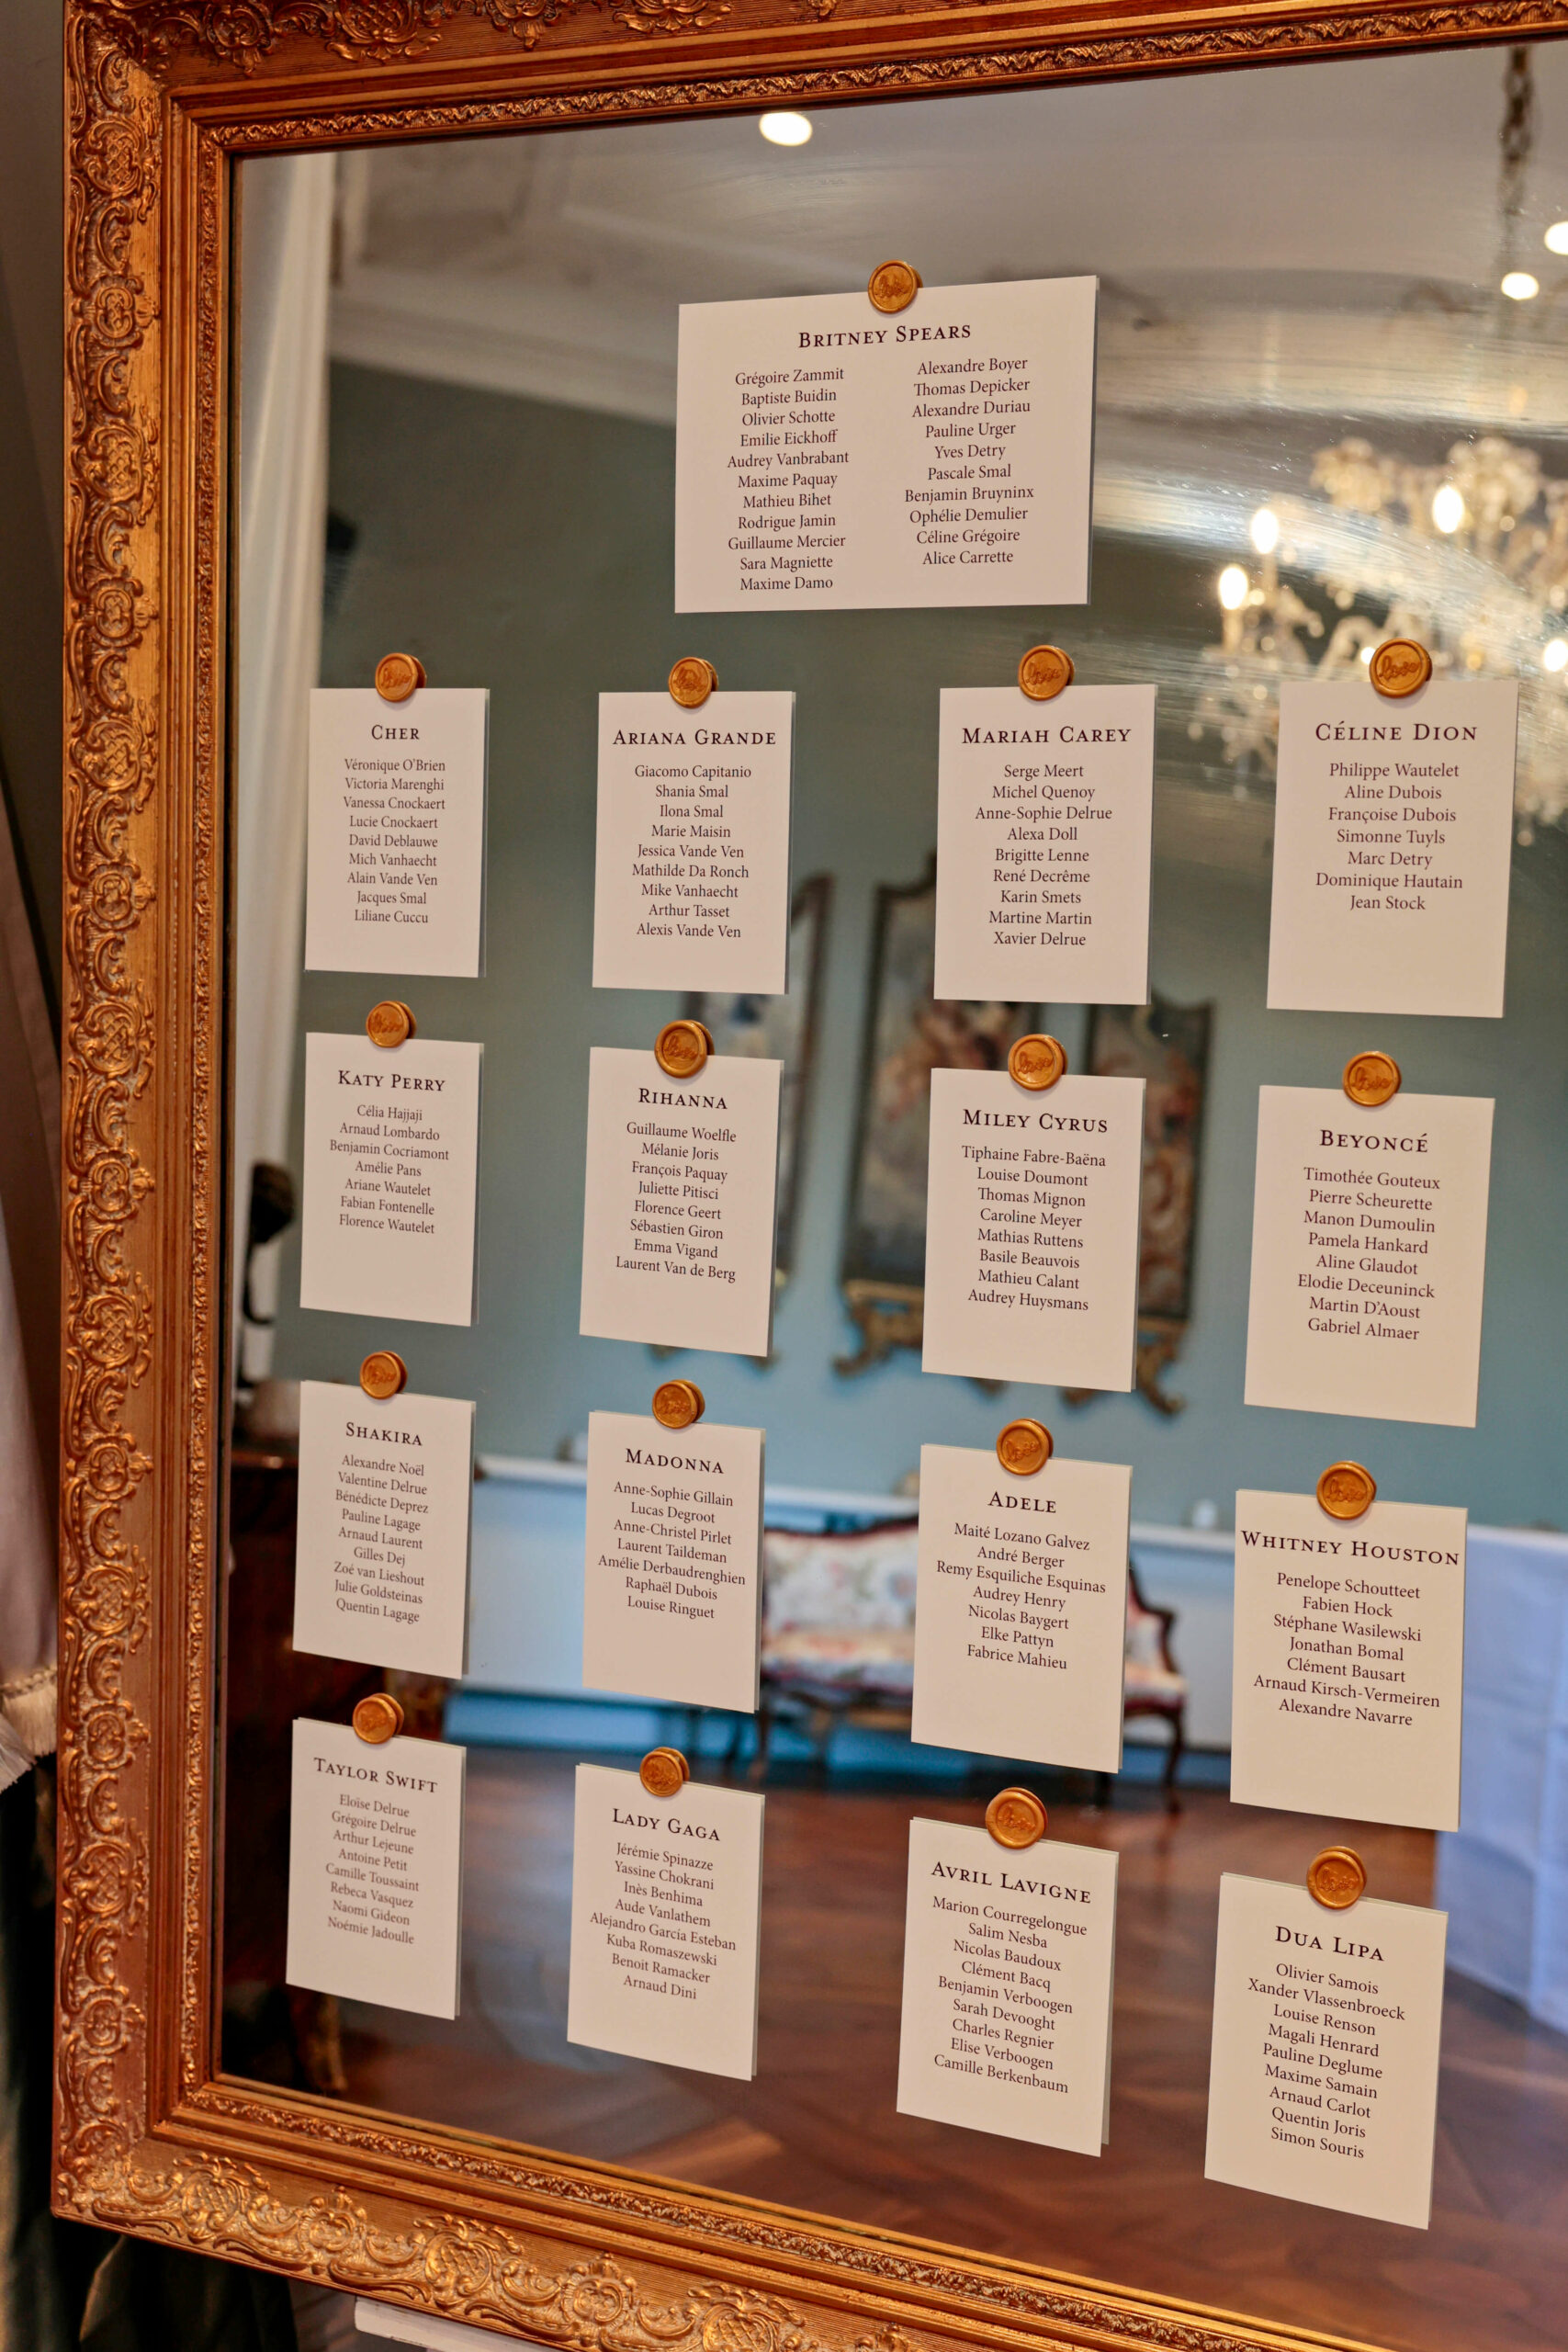 BRITNEY SPEARS
Grégoire Zammit
Baptiste Buidin
Olivier Schotte
Emilie Eickhoff
Audrey Vanbrabant
Maxime Paquay
Mathieu Bihet
Rodrigue Jamin
Guillaume Mercier
Sara Magniette
Maxime Damo
Alexandre Boyer
Thomas Depicker
Alexandre Duriau
Pauline Urger
Yves Detry
Pascale Smal
Benjamin Bruyninx
Ophélie Demulier
Céline Grégoire
Alice Carrette
CHER
Véronique O'Brien
Victoria Marenghi
Vanessa Cnockaert
Lucie Cnockaert
David Deblauwe
Mich Vanhaecht
Alain Vande Ven
Jacques Smal
Liliane Cuccu
ARIANA GRANDE
Giacomo Capitanio
Shania Smal
Ilona Smal
Marie Maisin
Jessica Vande Ven
Mathilde Da Ronch
Mike Vanhaecht
Arthur Tasset
Alexis Vande Ven
MARIAH CAREY
Serge Meert
Michel Quenoy
Anne-Sophie Delrue
Alexa Doll
Brigitte Lenne
René Decrême
Karin Smets
Martine Martin
Xavier Delrue
love
CÉLINE DION
Philippe Wautelet
Aline Dubois
Françoise Dubois
Simonne Tuyls
Marc Detry
Dominique Hautain
Jean Stock
KATY PERRY
Célia Hajjaji
Arnaud Lombardo
Benjamin Cocriamont
Amélie Pans
Ariane Wautelet
Fabian Fontenelle
Florence Wautelet
RIHANNA
Guillaume Woelfle
Mélanie Joris
François Paquay
Juliette Pitisci
Florence Geert
Sébastien Giron
Emma Vigand
Laurent Van de Berg
love
MILEY CYRUS
Tiphaine Fabre-Baëna
Louise Doumont
Thomas Mignon
Caroline Meyer
Mathias Ruttens
Basile Beauvois
Mathieu Calant
Audrey Huysmans
love
BEYONCÉ
Timothée Gouteux
Pierre Scheurette
Manon Dumoulin
Pamela Hankard
Aline Glaudot
Elodie Deceuninck
Martin D'Aoust
Gabriel Almaer
SHAKIRA
Alexandre Noël
Valentine Delrue
Bénédicte Deprez
Pauline Lagage
Arnaud Laurent
Gilles Dej
Zoé van Lieshout
Julie Goldsteinas
Quentin Lagage
MADONNA
Anne-Sophie Gillain
Lucas Degroot
Anne-Christel Pirlet
Laurent Taildeman
Amélie Derbaudrenghien
Raphaël Dubois
Louise Ringuet
love
ADELE
Maité Lozano Galvez
André Berger
Remy Esquiliche Esquinas
Audrey Henry
Nicolas Baygert
Elke Pattyn
Fabrice Mahieu
love
WHITNEY HOUSTON
Penelope Schoutteet
Fabien Hock
Stéphane Wasilewski
Jonathan Bomal
Clément Bausart
Arnaud Kirsch-Vermeiren
Alexandre Navarre
TAYLOR SWIFT
Eloïse Delrue
Grégoire Delrue
Arthur Lejeune
Antoine Petit
Camille Toussaint
Rebeca Vasquez
Naomi Gideon
Noémie Jadoulle
LADY GAGA
Jérémie Spinazze
Yassine Chokrani
Inès Benhima
Aude Vanlathem
Alejandro García Esteban
Kuba Romaszewski
Benoit Ramacker
Arnaud Dini
AVRIL LAVIGNE
Marion Courregelongue
Salim Nesba
Nicolas Baudoux
Clément Bacq
Benjamin Verboogen
Sarah Devooght
Charles Regnier
Elise Verboogen
Camille Berkenbaum
love
DUA LIPA
Olivier Samois
Xander Vlassenbroeck
Louise Renson
Magali Henrard
Pauline Deglume
Maxime Samain
Arnaud Carlot
Quentin Joris
Simon Souris